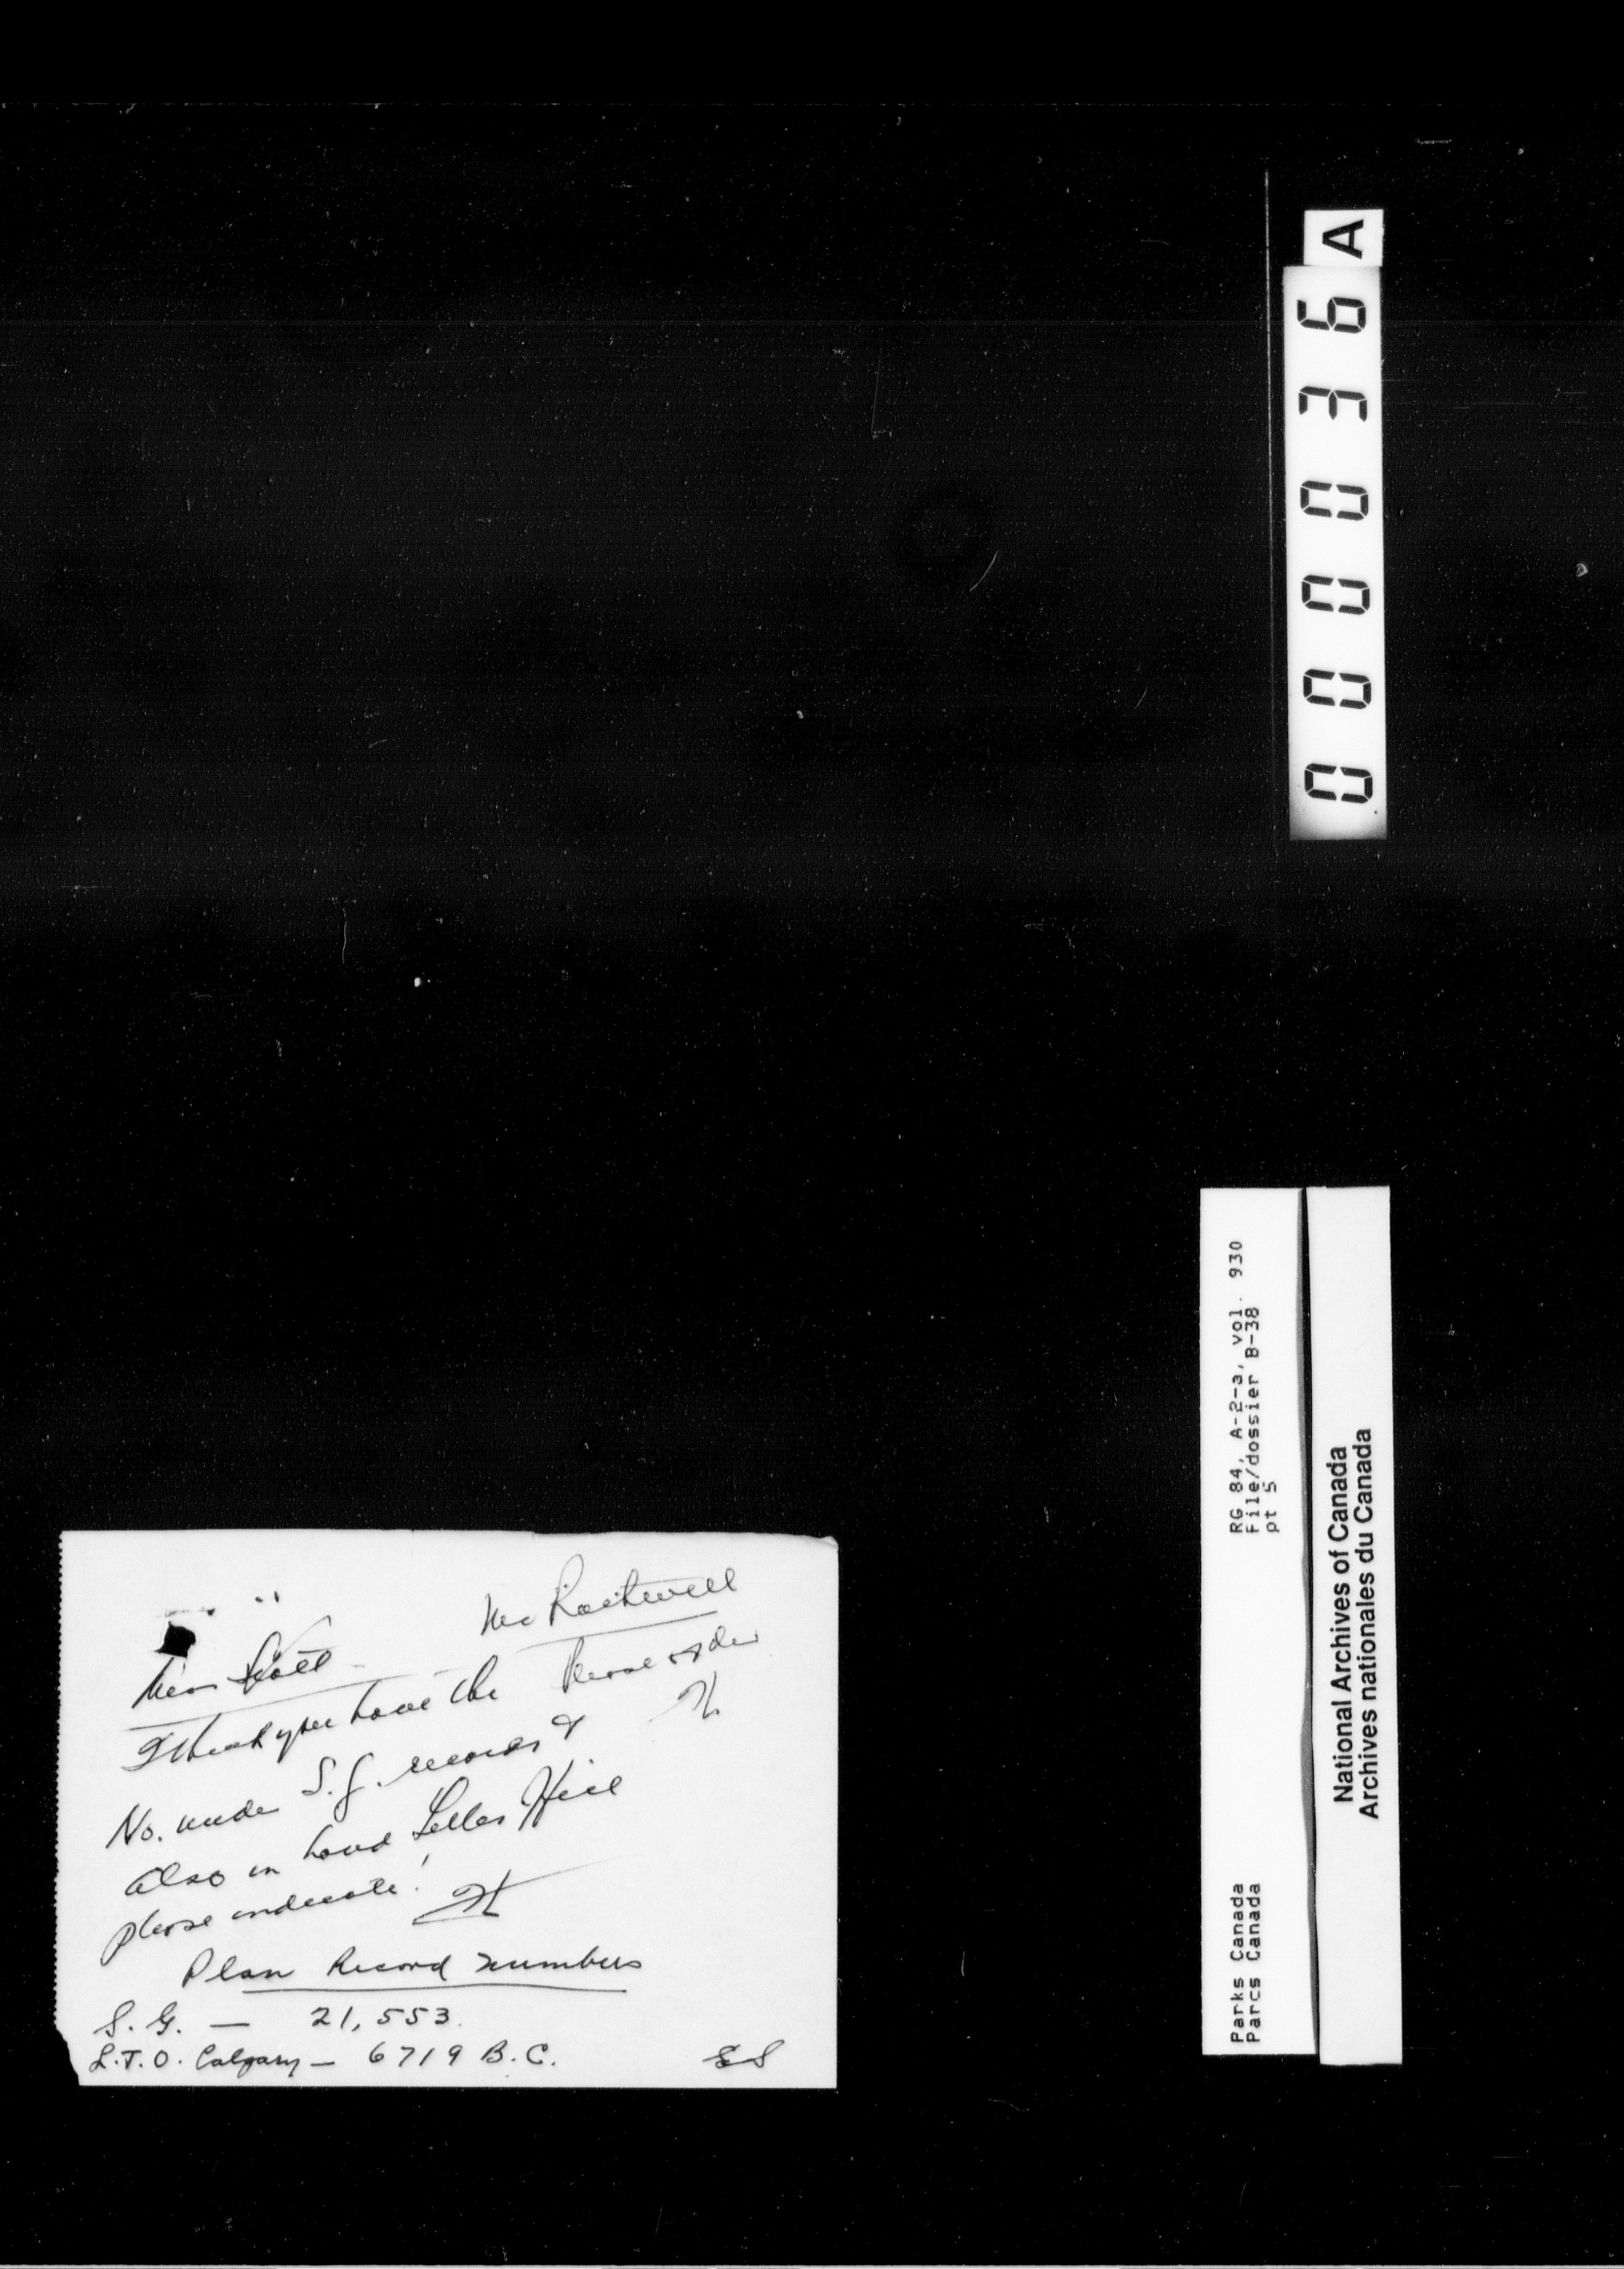 Mr Rockwell
Please order
H
Miss Scott
I think you have the
No. under S.G. records &
also in Land Titles Will
please indicate!
H
Plan Record Numbers
S. G. — 21,553.
L.T.O. Calgary — 6719 B.C. ES
A
000036
RG 84, A-2-a, vol. 930
File/dossier B-38
pt 5
Parks Canada
Parcs Canada
National Archives of Canada
Archives nationales du Canada